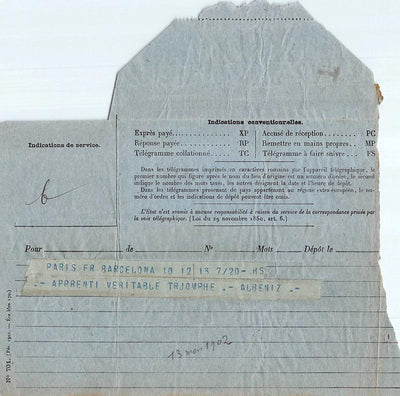 Indications de service.
6
Indications conventionnelles.
Exprès payé............... XP
Réponse payée............ RP
Télégramme collationné... TC
Accusé de réception....... PC
Remettre en mains propres.. MP
Télégramme à faire suivre... FS
Dans les télégrammes imprimés en caractères romains par l'appareil télégraphique, le
premier nombre qui figure après le nom du lieu d'origine est un numéro d'ordre, le second
indique le nombre des mots taxés, les autres désignent la date et l'heure de dépôt.
Dans les télégrammes provenant de pays appartenant au régime extra-européen, le nu-
méro d'ordre et les indications de dépôt peuvent être omis.
L'État n'est soumis à aucune responsabilité à raison du service de la correspondance privée par la
voie télégraphique. (Loi du 29 novembre 1850, art. 6.)
Pour de N° Mots Dépôt le
PARIS FR BARCELONA 10 12 13 7/20- MS
.- APPRENTI VERITABLE TRJOMPHE .- ALBENIZ .-
13 mai 1902
N° 701.